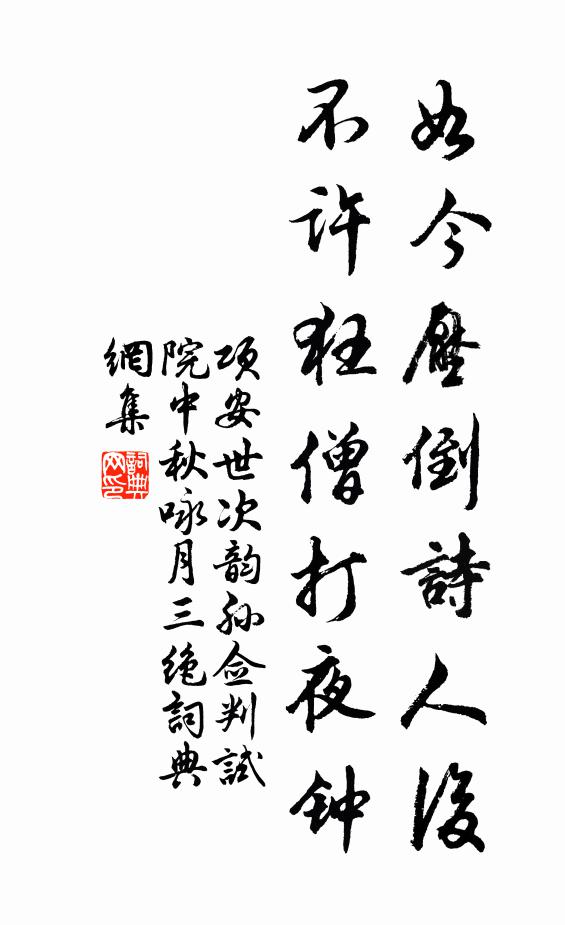 如今壓倒詩人後
不許狂僧打夜钟
项安世次韵孙佥判試
院中秋咏月三绝詞典
網集
詞典
网印